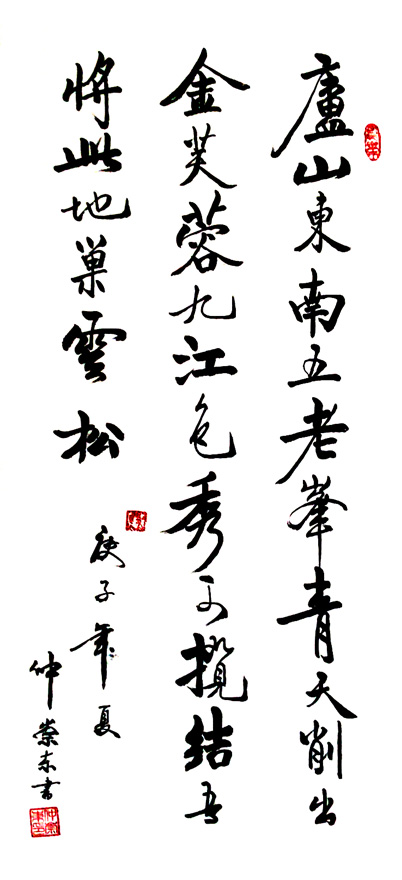 廬山東南五老峯青天削出
金芙蓉九江色秀可攬結吾
將此地巢雲松
庚子年夏
仲崇东書